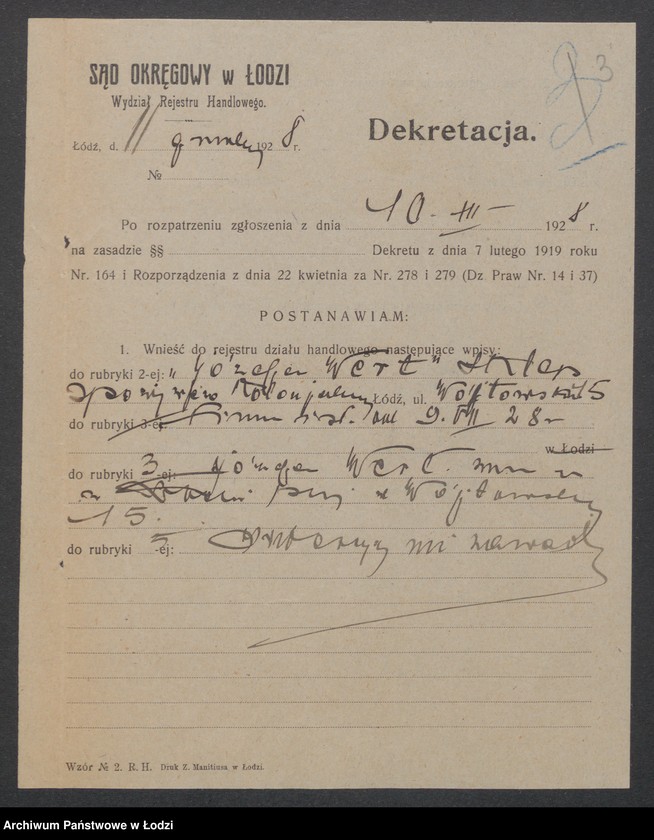 3
SĄD OKRĘGOWY w ŁODZI
Wydział Rejestru Handlowego.
Dekretacja.
Łódź, d. 11 grudnia 1928 r.
№
Po rozpatrzeniu zgłoszenia z dnia 10 - XII - 1928 r.
na zasadzie §§ Dekretu z dnia 7 lutego 1919 roku
Nr. 164 i Rozporządzenia z dnia 22 kwietnia za Nr. 278 i 279 (Dz. Praw Nr. 14 i 37)
POSTANAWIAM:
1. Wnieść do rejestru działu handlowego następujące wpisy:
do rubryki 2-ej: „Józefa Wert" Sklep
spożywczo Kolonjalny Łódź, ul. Wójtowska 15
do rubryki 3-ej: Firma istn. od 9. VII 28 r
w Łodzi
do rubryki 3-ej: Józefa Wert. zam w
w Łodzi przy ul Wójtowskiej
15.
do rubryki 5-ej: nie zawarła
Wzór № 2. R. H. Druk Z. Manitiusa w Łodzi.
Archiwum Państwowe w Łodzi